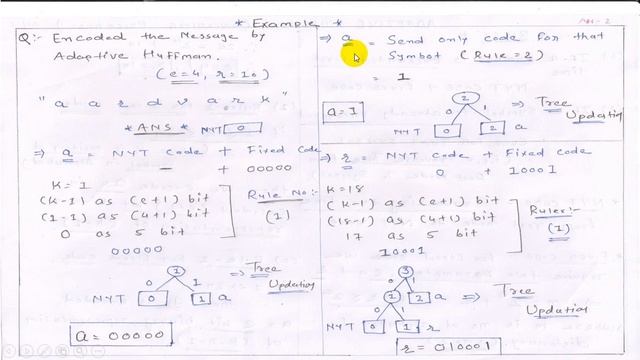 * Example *
Q:- Encoded the Message by
Adaptive Huffman.
(e=4, r=10)
" a a r d v a r k "
* ANS * NYT 0
⇒ a = NYT code + Fixed code
— + 00000
K = 1
(k-1) as (e+1) bit
(1-1) as (4+1) bit
0 as 5 bit
00000
Rule No:-
(1)
1
0 1
NYT 0 1 a
⇒ Tree
Updation
a = 00000
⇒ a = Send only code for that
Symbol (Rule = 2)
= 1
a = 1
2
0 1
NYT 0 2 a
⇒ Tree
Updation
⇒ r = NYT code + Fixed code
0 + 10001
K = 18
(k-1) as (e+1) bit
(18-1) as (4+1) bit
17 as 5 bit
10001
Rule:-
(1)
3
0 1
1 2 a
0 1
NYT 0 1 r
⇒ Tree
Updation
r = 010001